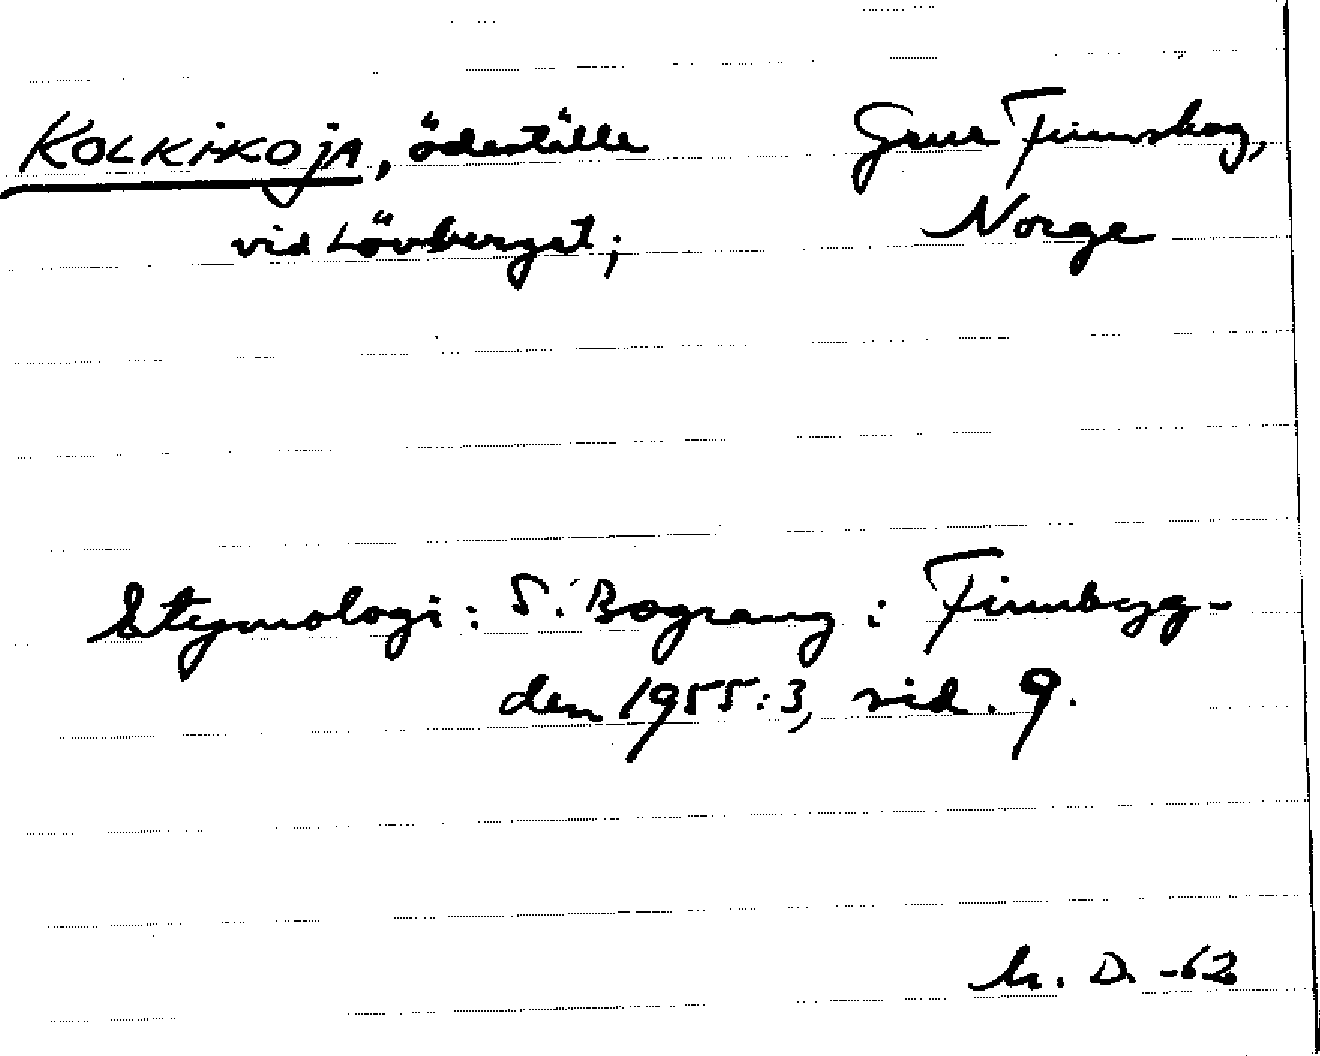 KOLKIKOJA, ödeställe Grue Finnskog,
vid Lövberget; Norge
Etymologi: S. Bograng: Finnbygg-
den 1955:3, sid. 9.
D. -62